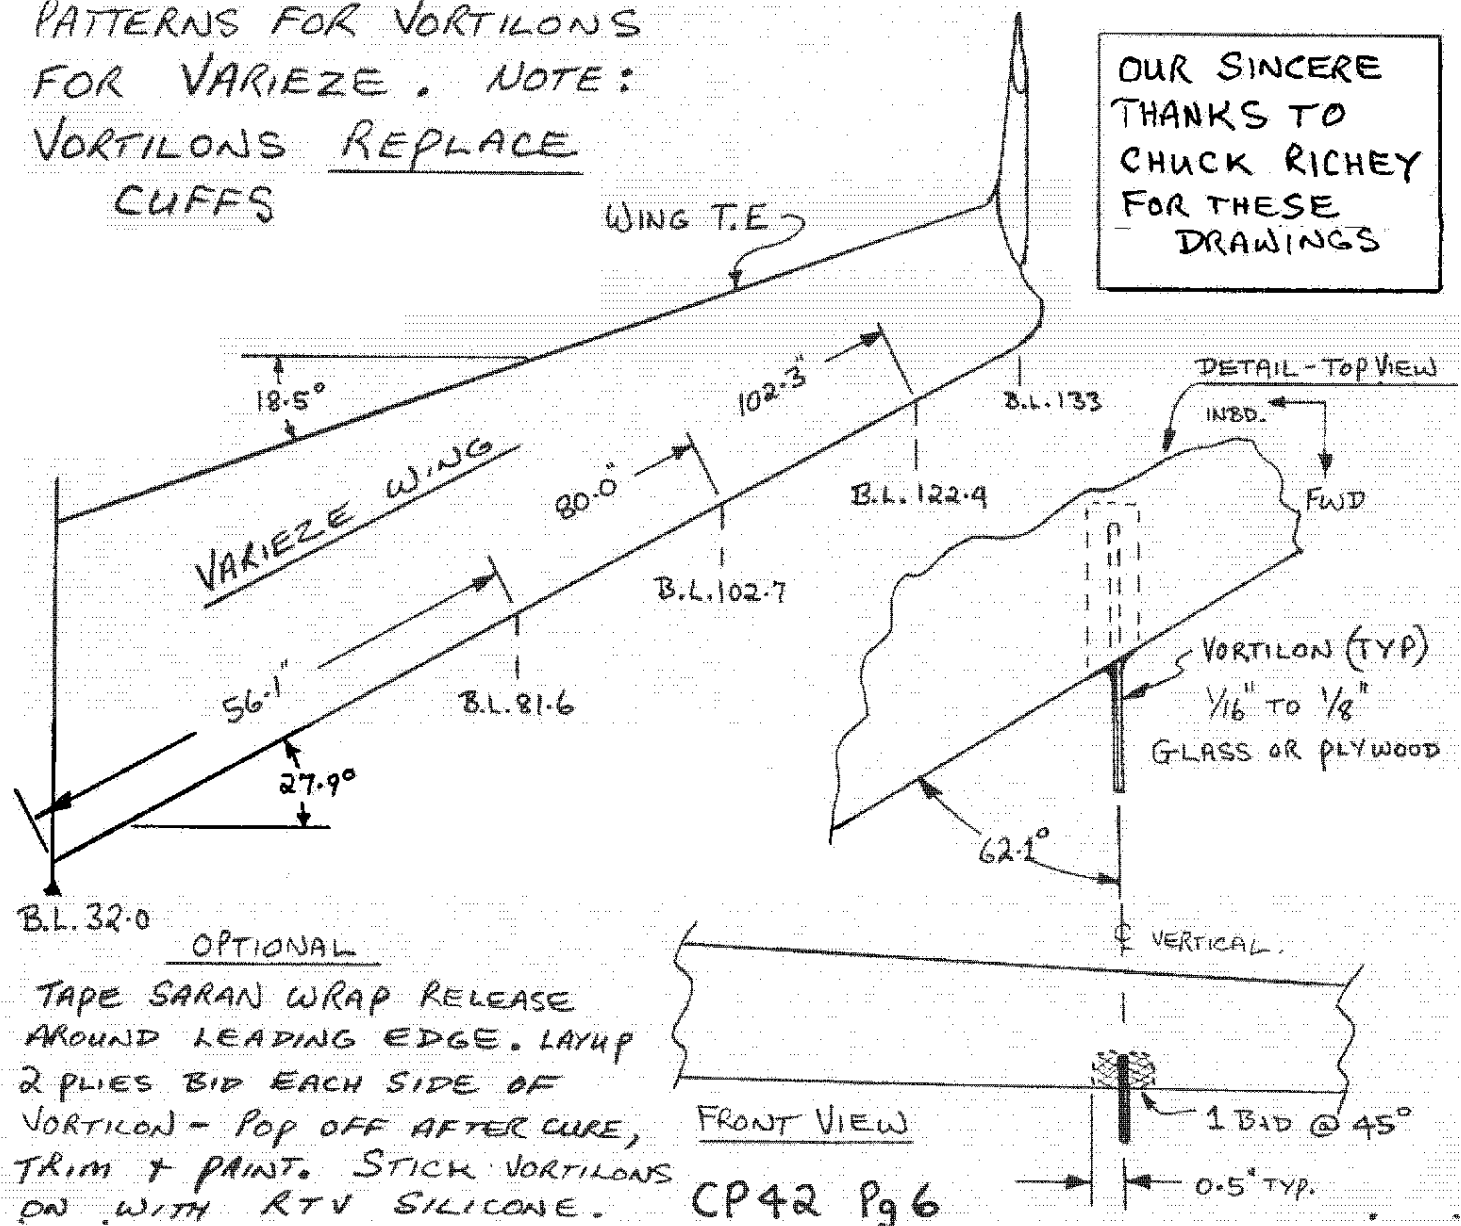 PATTERNS FOR VORTILONS
FOR VARIEZE. NOTE:
VORTILONS REPLACE
CUFFS
OUR SINCERE
THANKS TO
CHUCK RICHEY
FOR THESE
DRAWINGS
WING T.E
18.5°
102.3"
B.L.133
DETAIL-TOP VIEW
INBD.
FWD
VARIEZE WING
80.0"
B.L.122.9
B.L.102.7
56.1"
B.L.81.6
VORTILON (TYP)
1/16" TO 1/8"
GLASS OR PLYWOOD
27.9°
62.1°
B.L.32.0
℄ VERTICAL.
OPTIONAL
TAPE SARAN WRAP RELEASE
AROUND LEADING EDGE. LAYUP
2 PLIES BID EACH SIDE OF
VORTILON - POP OFF AFTER CURE,
TRIM & PAINT. STICK VORTILONS
ON WITH RTV SILICONE.
FRONT VIEW
1 BID @ 45°
0.5" TYP.
CP42 Pg 6